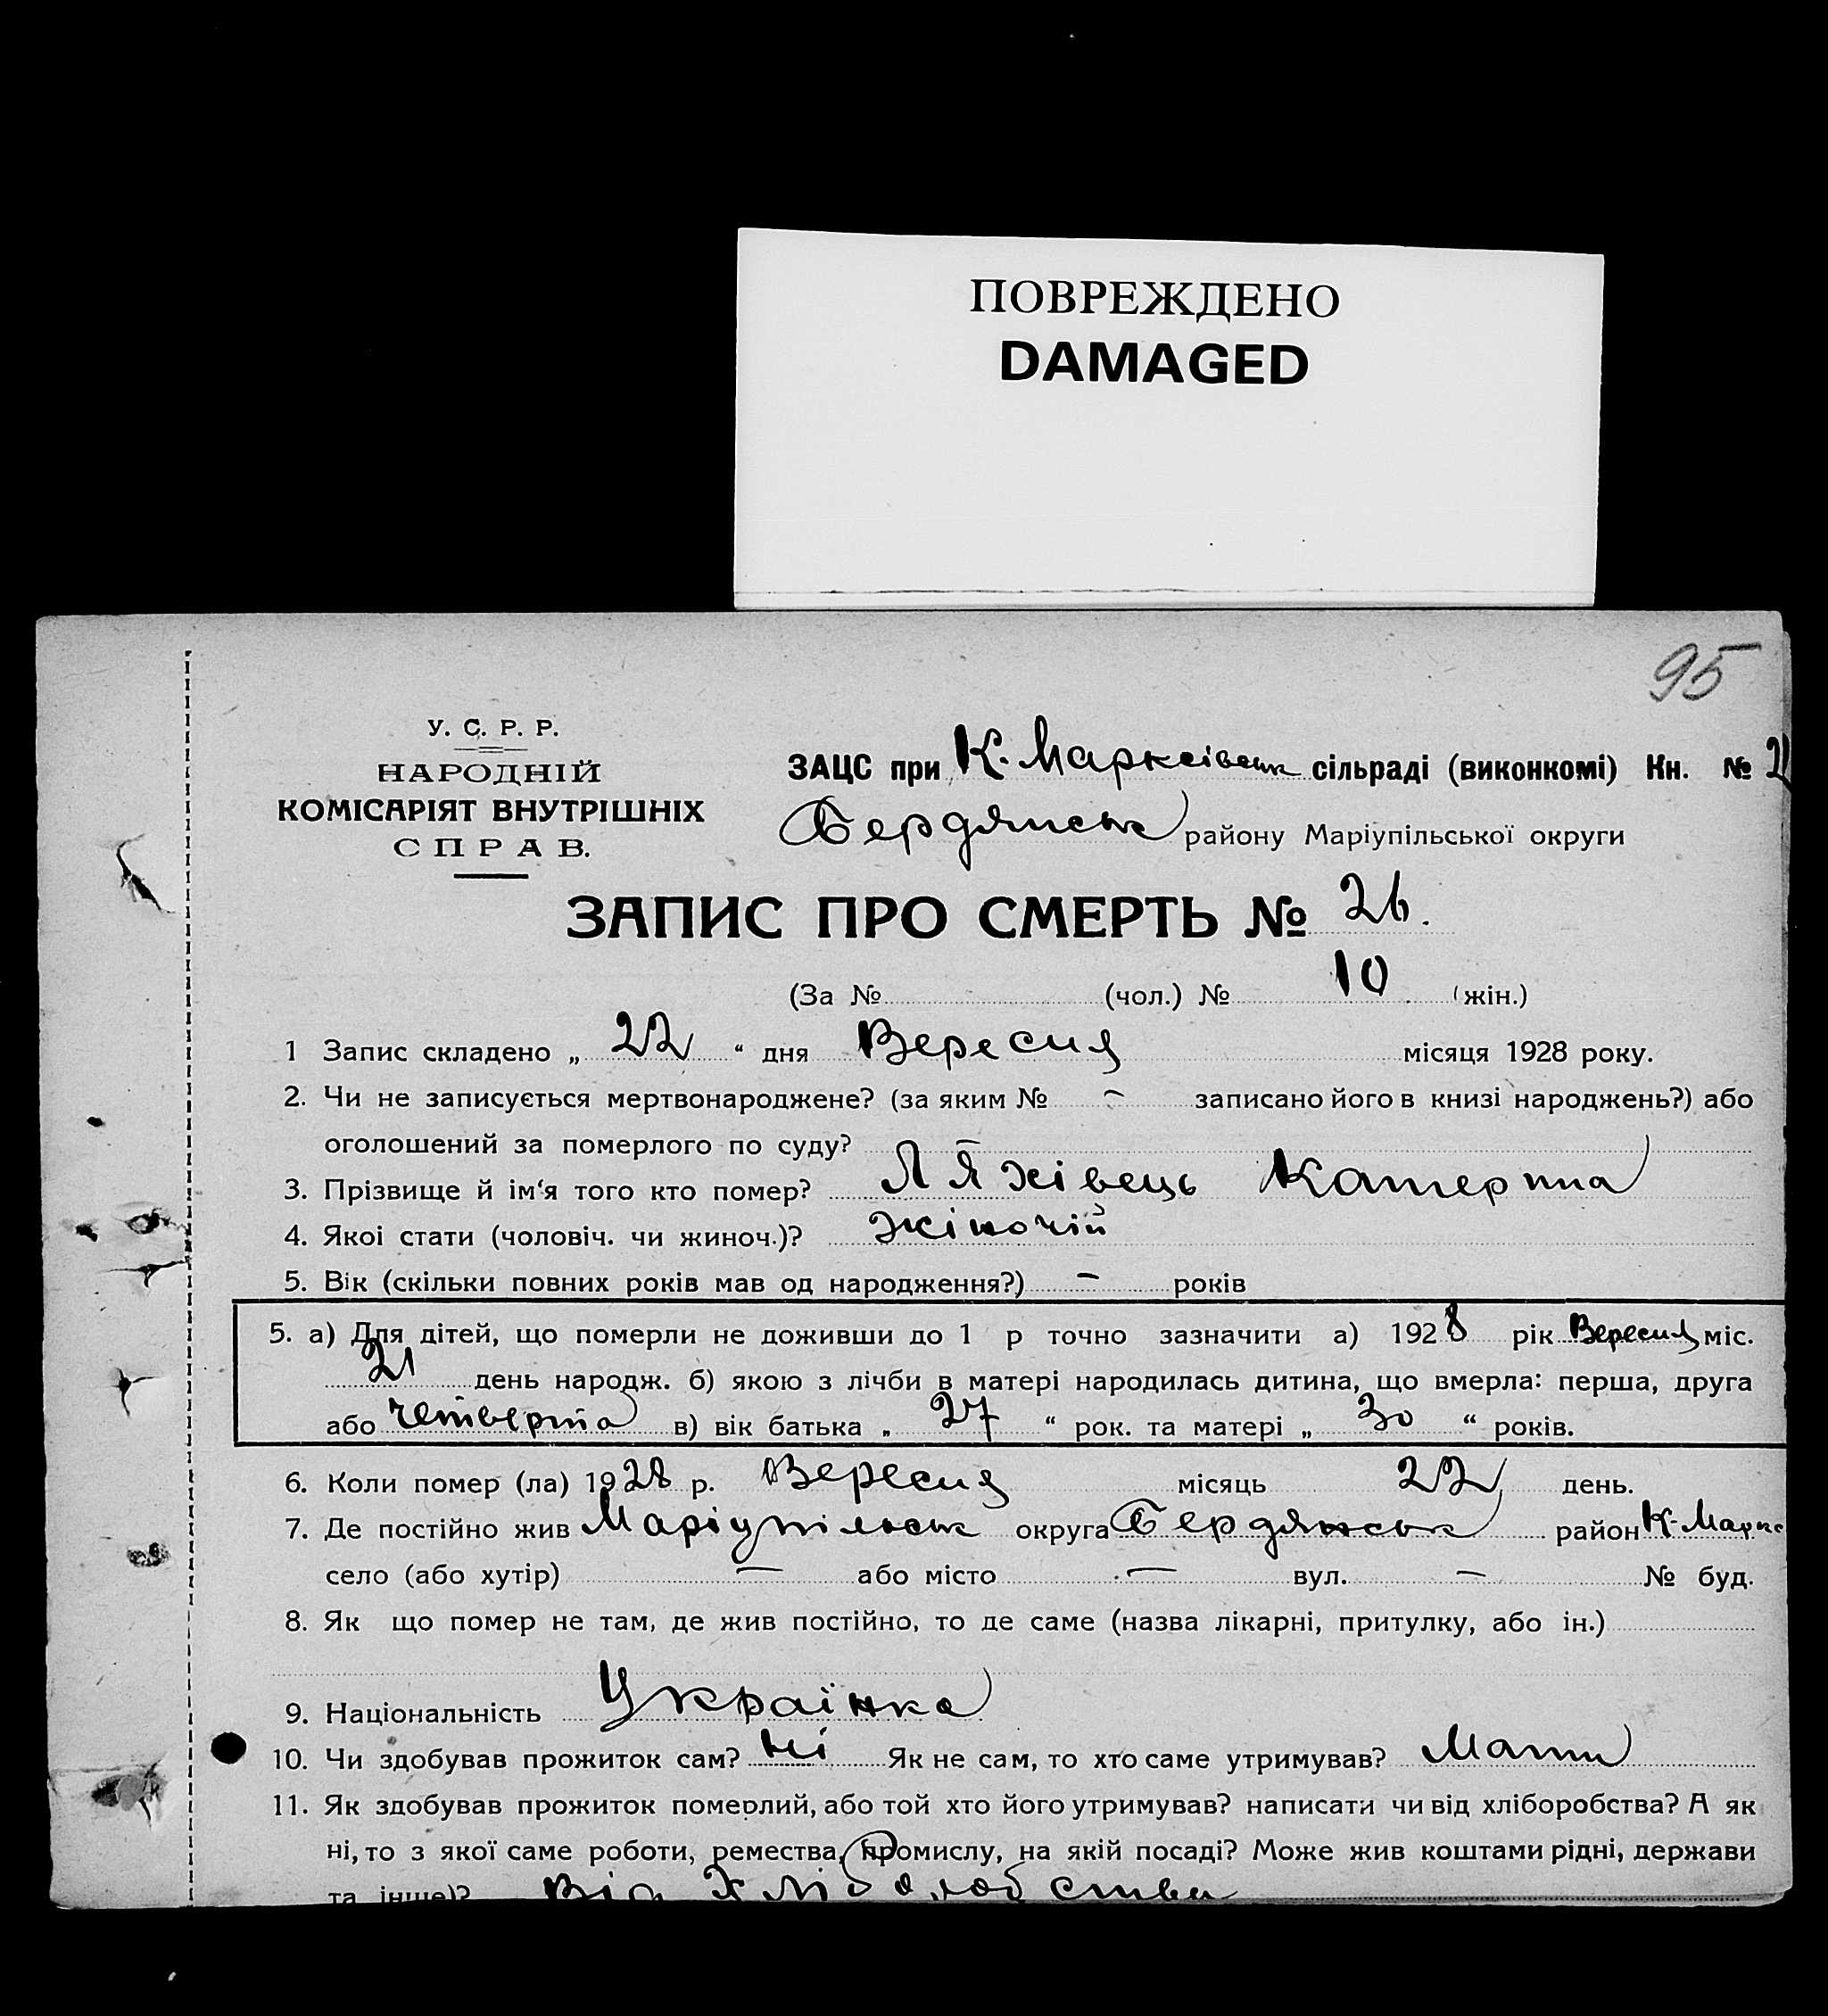 ПОВРЕЖДЕНО
DAMAGED
95
У. С. Р. Р.
НАРОДНІЙ
КОМІСАРІЯТ ВНУТРІШНІХ
СПРАВ.
ЗАЦС при К. Марксівськ сільраді (виконкомі) Кн. №
Бердянськ району Маріупільської округи
ЗАПИС ПРО СМЕРТЬ № 26.
(За № (чол.) № 10 (жін.)
1 Запис складено „ 22 “ дня Вересня місяця 1928 року.
2. Чи не записується мертвонароджене? (за яким № – записано його в книзі народжень?) або
оголошений за померлого по суду? –
3. Прізвище й ім‘я того кто помер? Ляхівець Катерина
4. Якоі стати (чоловіч. чи жиноч.)? жіночій
5. Вік (скільки повних років мав од народження?) – років
5. а) Для дітей, що померли не доживши до 1 р точно зазначити а) 1928 рік Вересня міс.
21 день народж. б) якою з лічби в матері народилась дитина, що вмерла: перша, друга
або четверта в) вік батька „ 27 “ рок. та матері „ 30 “ років.
6. Коли помер (ла) 1928 р. Вересня місяць 22 день.
7. Де постійно жив Маріупільськ округа Бердянськ район К-Маркс
село (або хутір) — або місто — вул. — № буд.
8. Як що помер не там, де жив постійно, то де саме (назва лікарні, притулку, або ін.)
9. Національність Українка
10. Чи здобував прожиток сам? ні Як не сам, то хто саме утримував? Мати
11. Як здобував прожиток померлий, або той хто його утримував? написати чи від хліборобства? А як
ні, то з якої саме роботи, ремества, промислу, на якій посаді? Може жив коштами рідні, держави
та інше)? Від Хліборобства